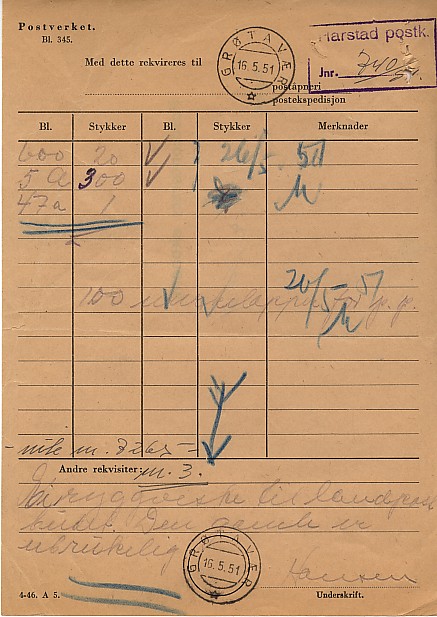 Postverket.
Bl. 345.
Harstad postk.
Jnr. 740/51
Med dette rekvireres til
GRØTAVER
16.5.51
poståpneri
postekspedisjon
Bl. Stykker Bl. Stykker Merknader
600 20 26/5. 51
5 a 300
47a 1
100 p. p. 26/5 51
Andre rekvisiter: m. 3.
til landpost
budet. Den gamle er
ubrukelig
GRØTAVER
16.5.51
Hansen
4-46. A 5. Underskrift.